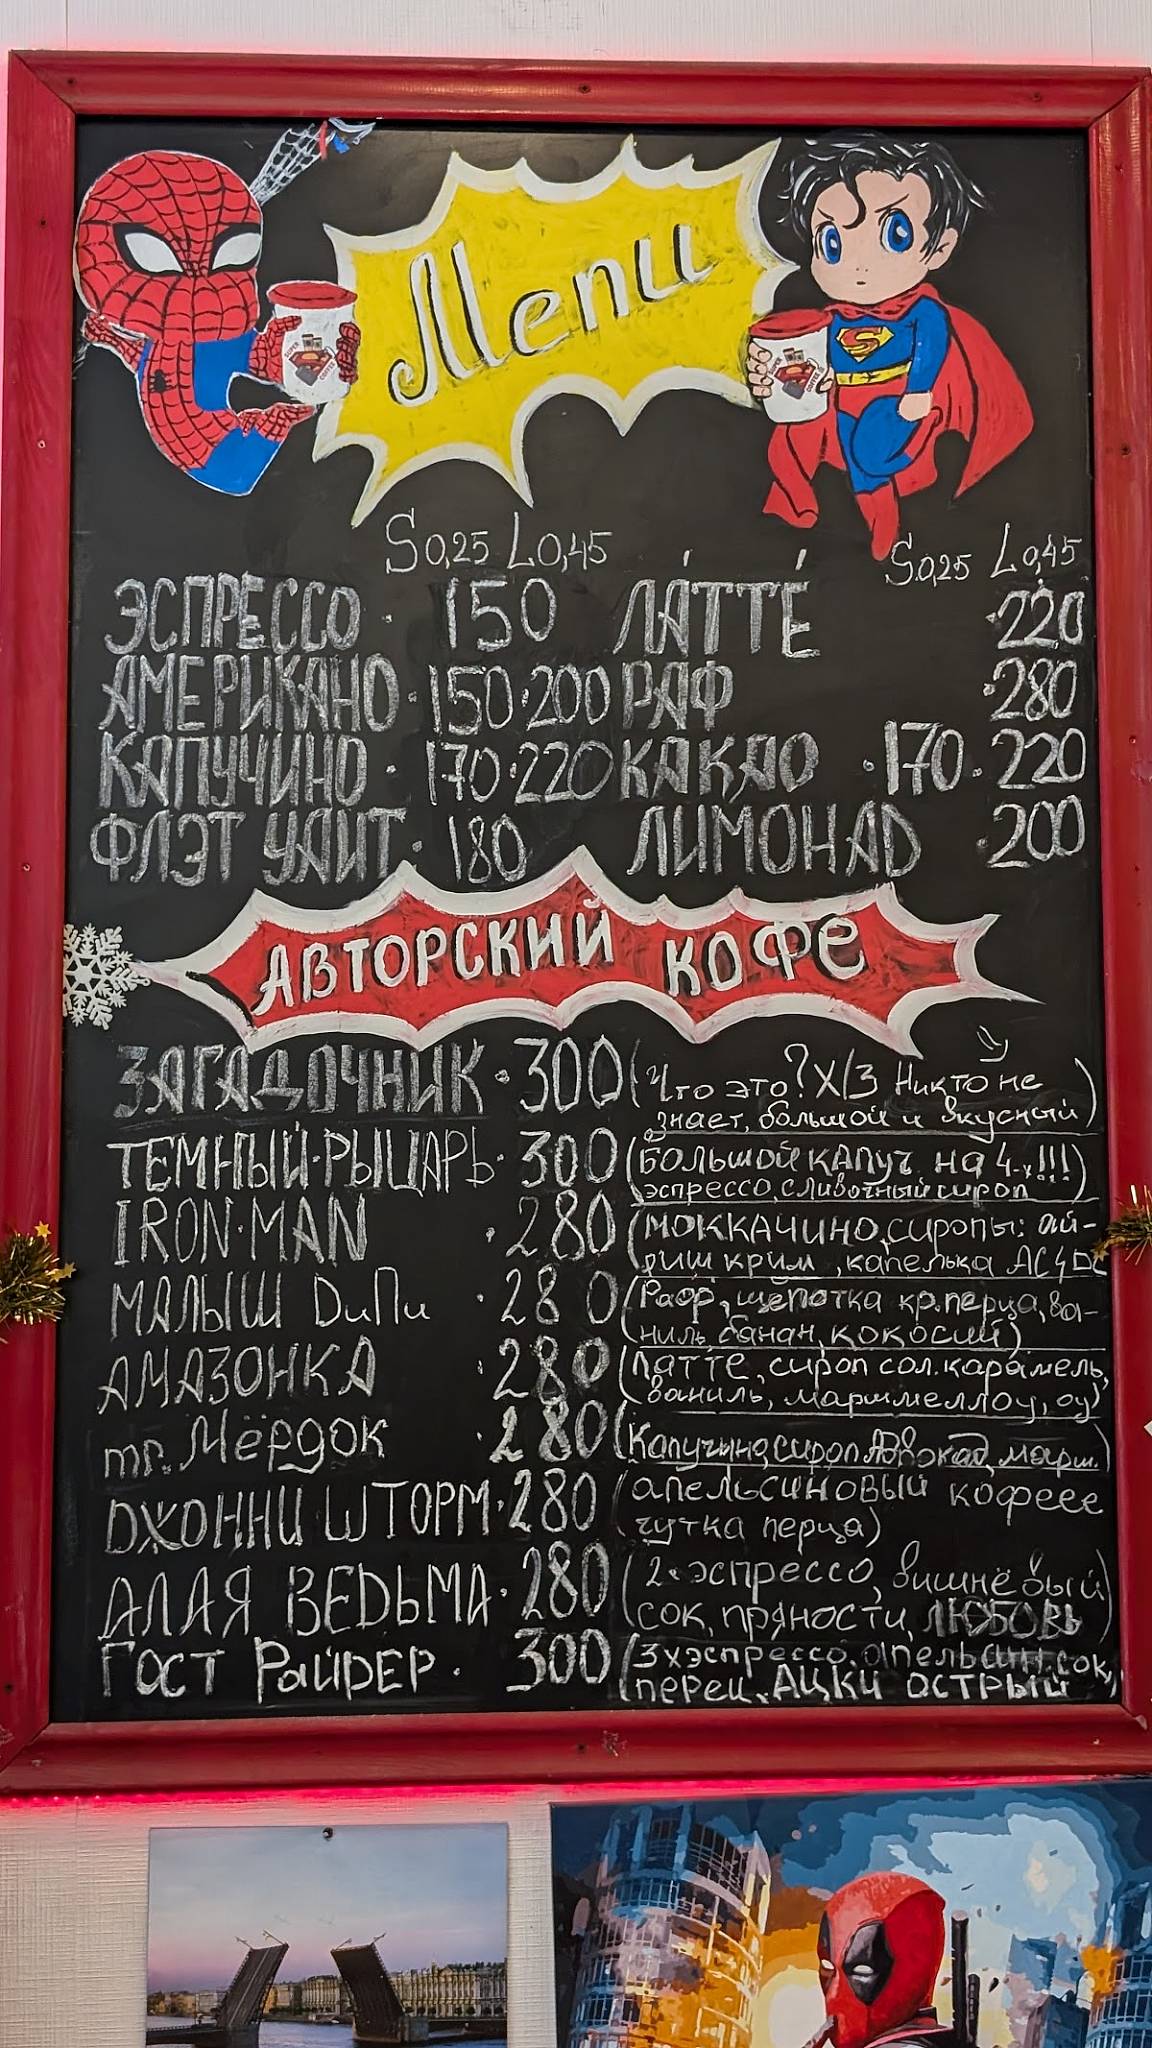 Menu
S 0,25 L 0,45
S.0,25 L 0,45
ЭСПРЕССО · 150 ЛА́ТТЕ́ ·220
АМЕРИКАНО · 150·200 РАФ ·280
КАПУЧИНО · 170·220 КАКАО ·170· 220
ФЛЭТ УАИТ · 180 ЛИМОНАД ·200
АВТОРСКИЙ КОФЕ
ЗАГАДОЧНИК · 300 (Что это? ХЗ Никто не
знает, большой и вкусный)
ТЕМНЫЙ·РЫЦАРЬ· 300 (БОЛЬШОЙ КАПУЧ на 4-х!!!
эспрессо, сливочный сироп)
IRON·MAN ·280 (МОККАЧИНО, сиропы: ай-
риш крим, капелька AC⚡DC
МАЛЫШ ДиПи ·280 (Раф, щепотка кр.перца, ва-
ниль, банан, кокосий)
АМАЗОНКА ·280 (Латте, сироп сол.карамель,
ваниль, маршмеллоу, оу)
mr. Мёрдок ·280 (Капучино, сироп Авокад, марш.)
ДЖОННИ ШТОРМ·280 (апельсиновый кофеее
чутка перца)
АЛАЯ ВЕДЬМА·280 (2·эспрессо, вишнёвый
сок, пряности, ЛЮБОВЬ)
Гост Райдер · 300 (3хэспрессо. апельсин.сок,
перец, АЦКИ ОСТРЫЙ